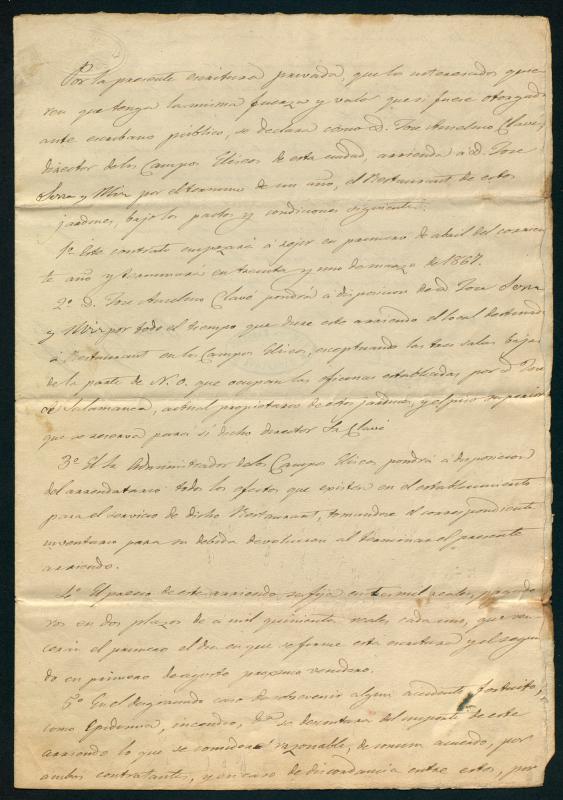 Por la presente escritura privada, que los interesados quie-
ren que tenga la misma fuerza y valor que si fuese otorgada
ante escribano público, se declara como D. Jose Anselmo Clavé,
director de los Campos Elíseos de esta ciudad, arrienda á D. Jose
Serra y Mir por el termino de un año, el Restaurant de estos
jardines, bajo los pactos y condiciones siguientes:
1º Este contrato empezará á rejir en primero de abril del corrien-
te año y terminará en treinta y uno de marzo de 1867.
2º D. Jose Anselmo Clavé pondrá á disposicion de D. Jose Serra
y Mir por todo el tiempo que dure este arriendo el local destinado
á Restaurant en los Campos Elíseos, exceptuando las tres salas bajas
de la parte de N. O. que ocupan las oficinas establecidas por D. Jose
de Salamanca, actual propietario de estos jardines, y el piso superior
que se reserva para sí dicho director Sr. Clavé
3º El Sr. Administrador de los Campos Elíseos pondrá á disposicion
del arrendatario todos los efectos que existen en el establecimiento
para el servicio de dicho Restaurant, tomandose el correspondiente
inventario para su debida devolucion al terminar el presente
arriendo.
4º El precio de este arriendo se fija en tres mil reales, pagade-
ros en dos plazos de á mil quinientos reales cada uno, que ven-
cerán el primero el dia en que se firme esta escritura y el segun-
do en primero de agosto proximo venidero.
5º En el desgraciado caso de sobrevenir algun accidente fortuito,
como Epidemia, incendio, &a se descontará del importe de este
arriendo lo que se considere razonable, de comun acuerdo, por
ambos contratantes, y en caso de discordancia entre estos, por